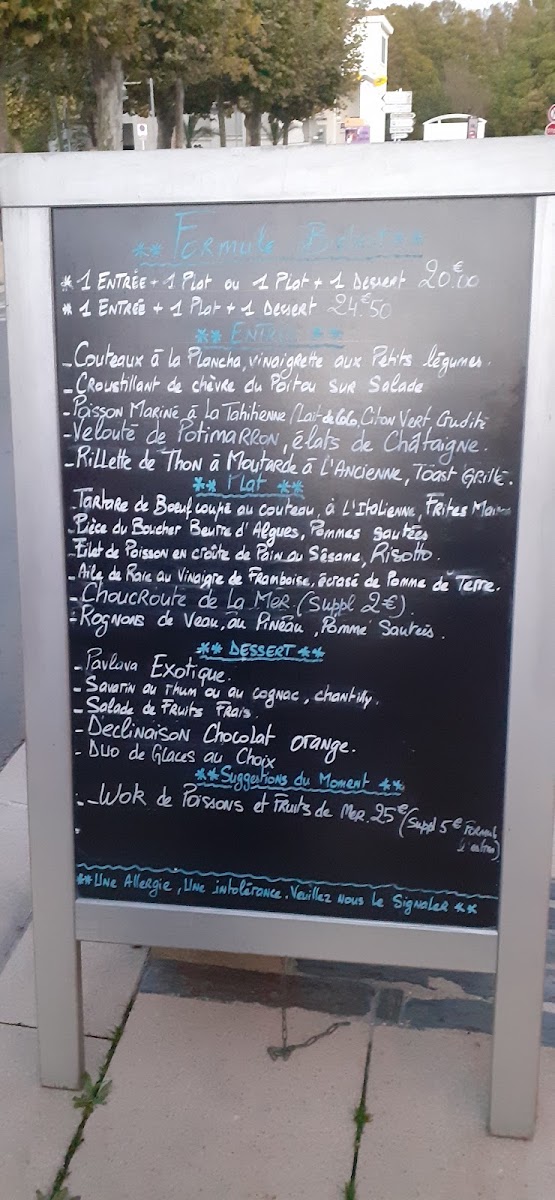 ** Formule **
* 1 Entrée + 1 Plat ou 1 Plat + 1 Dessert 20€00
* 1 Entrée + 1 Plat + 1 Dessert 24€50
** Entrée **
- Couteaux à la Plancha, vinaigrette aux Petits légumes.
- Croustillant de chèvre du Poitou sur Salade
- Poisson Mariné à La Tahitienne / Lait de Coco, Citon Vert, Crudité
- Velouté de Potimarron, éclats de Châtaigne.
- Rillette de Thon à Moutarde à L'Ancienne, Toast Grillé.
** Plat **
- Tartare de Boeuf coupé au couteau, à L'Italienne, Frites Maison
- Pièce du Boucher Beurre d'Algues, Pommes sautées
- Filet de Poisson en croûte de Pain au Sésame, Risotto.
- Aile de Raie au Vinaigre de Framboise, écrasé de Pomme de Terre.
- Choucroute de La Mer (Suppl 2€).
- Rognons de Veau, au Pineau, Pomme Sautés.
** DESSERT **
- Pavlova Exotique.
- Savarin au rhum ou au cognac, chantilly.
- Salade de Fruits Frais.
- Déclinaison Chocolat orange.
- Duo de Glaces au Choix
** Suggestions du Moment **
- Wok de Poissons et Fruits de Mer. 25€ (Suppl 5€ Formule
** Une Allergie, Une intolérance. Veuillez Nous Le Signaler **